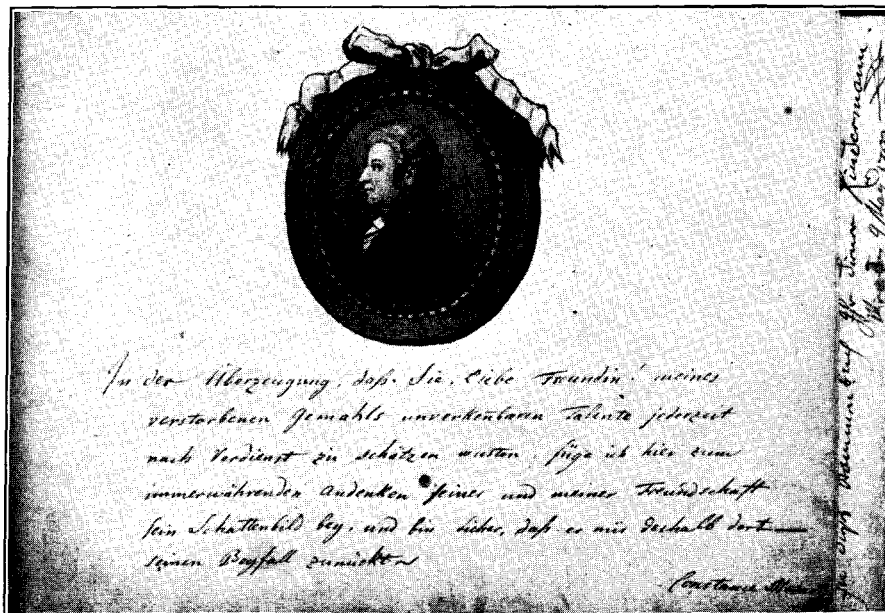 In der Überzeugung, daß Sie, liebe Freundin! meines
verstorbenen Gemahls unverkenbaren Talente jederzeit
nach Verdienst zu schätzen wusten, füge ich hier zum
immerwährenden Andenken seiner und meiner Freundschaft
sein Schattenbild bey, und bin sicher, daß er mir deshalb dort
seinen Beyfall zunickt
Constance
Kindermann.
9 May